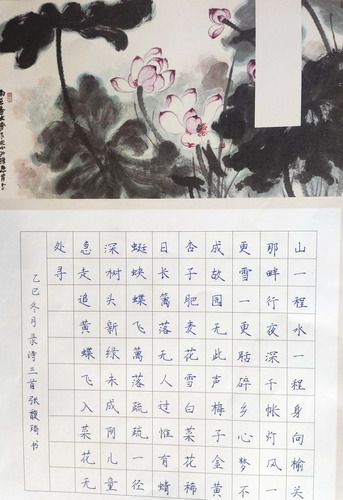 山一程水一程身向榆关
那畔行夜深千帐灯风一
更雪一更聒碎乡心梦不
成故园无此声梅子金黄
杏子肥麦花雪白菜花稀
日长篱落无人过惟有蜻
蜓蛱蝶飞篱落疏疏一径
深树头新绿未成阴儿童
急走追黄蝶飞入菜花无
处寻
乙巳冬月录诗三首张馥琦书